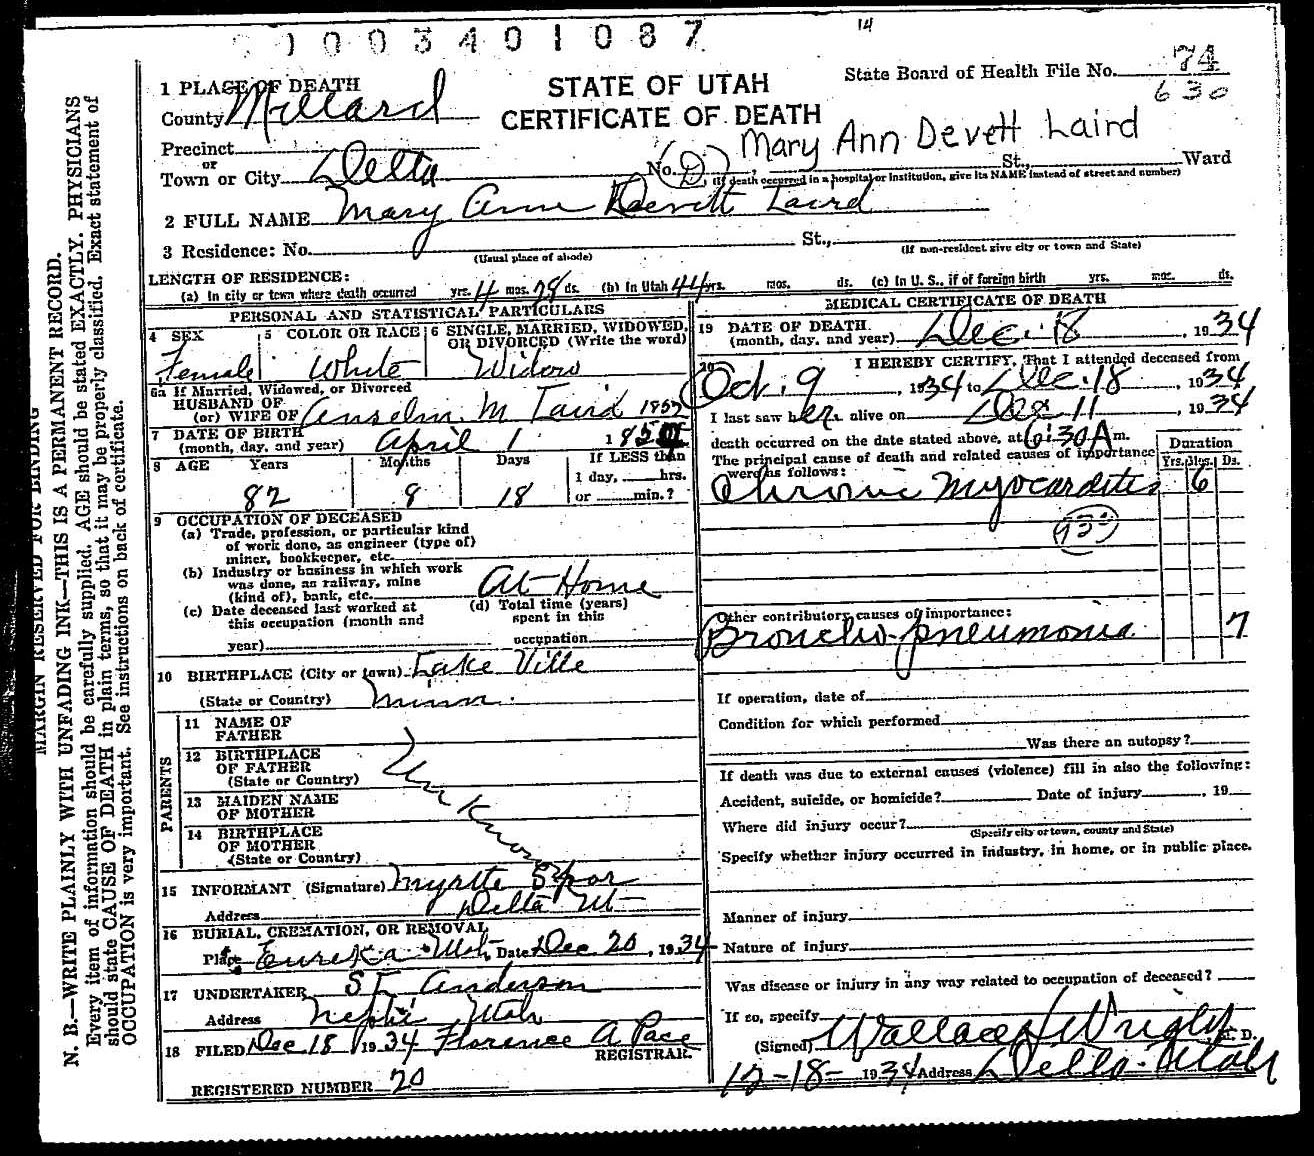 0003401087
14
STATE OF UTAH
CERTIFICATE OF DEATH
State Board of Health File No. 74
630
1 PLACE OF DEATH
County Millard
Precinct
or
Town or City Delta No. (D) St., Ward
Mary Ann Devett Laird
(If death occurred in a hospital or institution, give its NAME instead of street and number)
2 FULL NAME Mary Ann Devett Laird
3 Residence: No. St.,
(Usual place of abode) (If non-resident give city or town and State)
LENGTH OF RESIDENCE:
(a) In city or town where death occurred yrs. 4 mos. 28 ds. (b) In Utah 44 yrs. mos. ds. (c) In U. S., if of foreign birth yrs. mos. ds.
PERSONAL AND STATISTICAL PARTICULARS
4 SEX 5 COLOR OR RACE 6 SINGLE, MARRIED, WIDOWED, OR DIVORCED (Write the word)
Female White Widow
6a If Married, Widowed, or Divorced
HUSBAND OF
(or) WIFE OF Anselm M Laird 1852
7 DATE OF BIRTH
(month, day, and year) April 1 185
8 AGE Years Months Days If LESS than
1 day, hrs.
82 8 18 or min.?
9 OCCUPATION OF DECEASED
(a) Trade, profession, or particular kind
of work done, as engineer (type of)
miner, bookkeeper, etc.
(b) Industry or business in which work
was done, as railway, mine
(kind of), bank, etc. At Home
(c) Date deceased last worked at
this occupation (month and
year)
(d) Total time (years)
spent in this
occupation
10 BIRTHPLACE (City or town) Lake Ville
(State or Country) Minn.
PARENTS
11 NAME OF
FATHER
12 BIRTHPLACE
OF FATHER
(State or Country)
13 MAIDEN NAME
OF MOTHER
14 BIRTHPLACE
OF MOTHER
(State or Country)
Unknown
15 INFORMANT (Signature) Myrtte
Address Delta Ut
16 BURIAL, CREMATION, OR REMOVAL
Place Eureka Utah Date Dec 20, 1934
17 UNDERTAKER Anderson
Address Nephi Utah
18 FILED Dec 18 1934 Florence A Pace
REGISTRAR.
REGISTERED NUMBER 20
MEDICAL CERTIFICATE OF DEATH
19 DATE OF DEATH
(month, day, and year) Dec. 18, 1934
20 I HEREBY CERTIFY, That I attended deceased from
Oct. 9, 1934 to Dec. 18, 1934
I last saw her alive on Dec 11, 1934
death occurred on the date stated above, at 6:30 A m.
The principal cause of death and related causes of importance
were as follows:
Duration
Yrs. Mos. Ds.
Chronic Myocarditis 6
Other contributory causes of importance:
Broncho-pneumonia 7
If operation, date of
Condition for which performed
Was there an autopsy?
If death was due to external causes (violence) fill in also the following:
Accident, suicide, or homicide? Date of injury , 19
Where did injury occur?
(Specify city or town, county and State)
Specify whether injury occurred in industry, in home, or in public place.
Manner of injury
Nature of injury
Was disease or injury in any way related to occupation of deceased?
If so, specify
(Signed) Wallace Wright M. D.
12-18- 1934 Address Delta-Utah
MARGIN RESERVED FOR BINDING
N. B.—WRITE PLAINLY WITH UNFADING INK—THIS IS A PERMANENT RECORD.
Every item of information should be carefully supplied. AGE should be stated EXACTLY. PHYSICIANS
should state CAUSE OF DEATH in plain terms, so that it may be properly classified. Exact statement of
OCCUPATION is very important. See instructions on back of certificate.